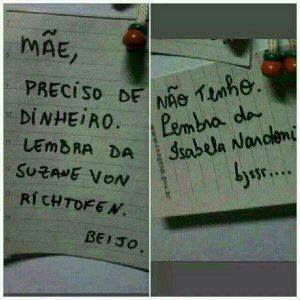 MÃE,
PRECISO DE
DINHEIRO.
LEMBRA DA
SUZANE VON
RICHTOFEN.
BEIJO.
NÃO Tenho.
Lembra da
Isabela Nardoni
bjssr....